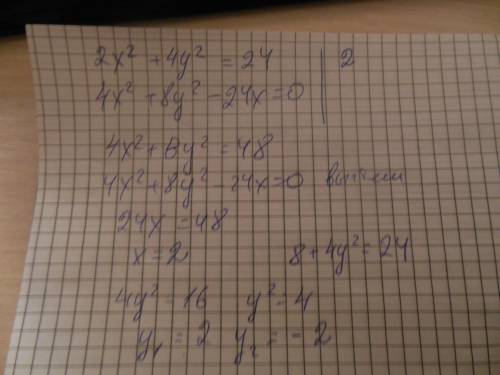 2x² + 4y² = 24 | 2
4x² + 8y² - 24x = 0
4x² + 8y² = 48
4x² + 8y² - 24x = 0
24x = 48
x = 2 8 + 4y² = 24
4y² = 16 y² = 4
y₁ = 2 y₂ = - 2